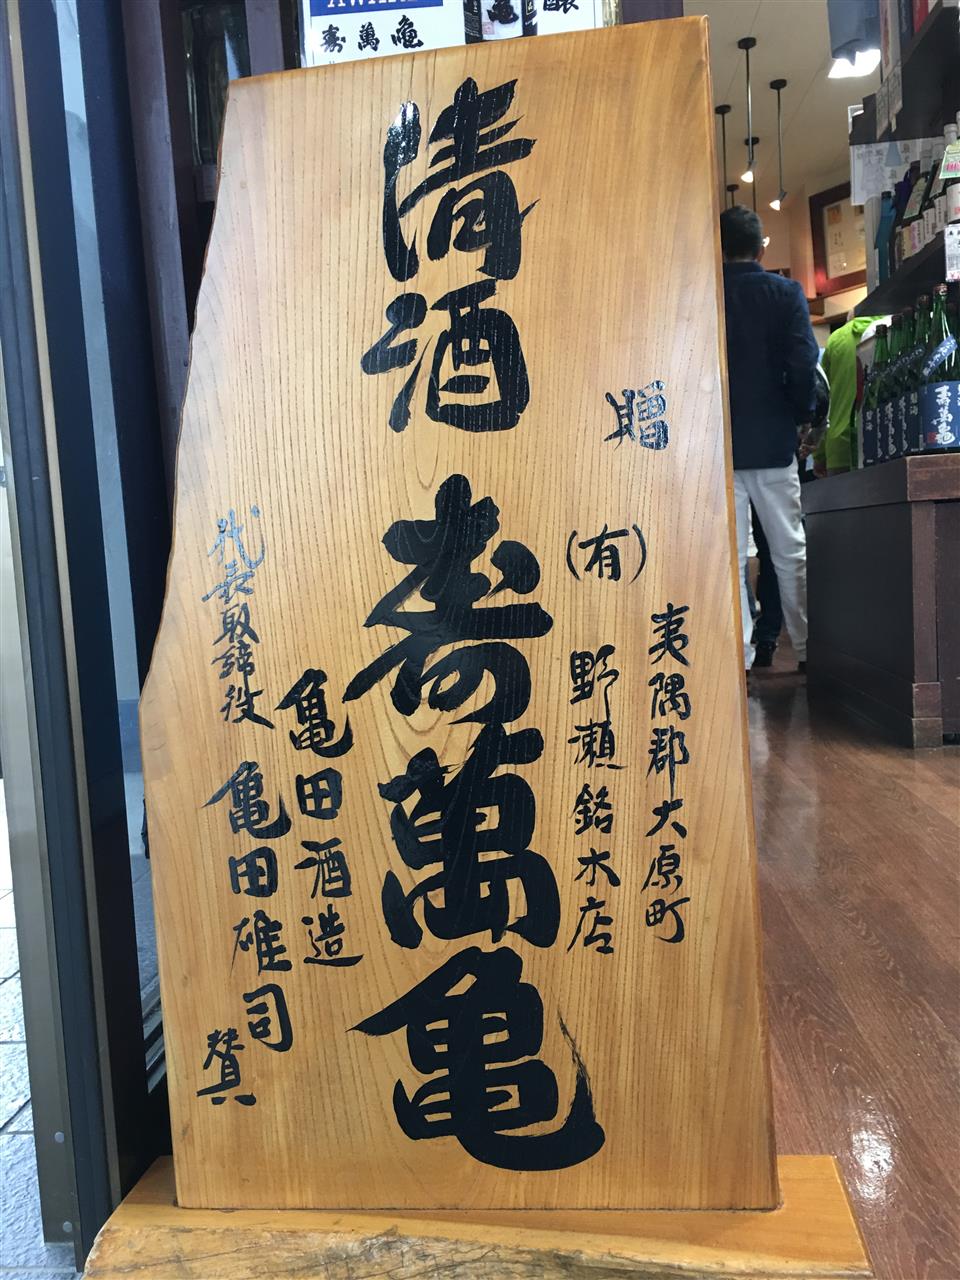 清酒 寿萬亀
贈
夷隅郡大原町
(有) 野瀬銘木店
亀田酒造
代表取締役 亀田雄司 賛
寿萬亀
寿萬亀